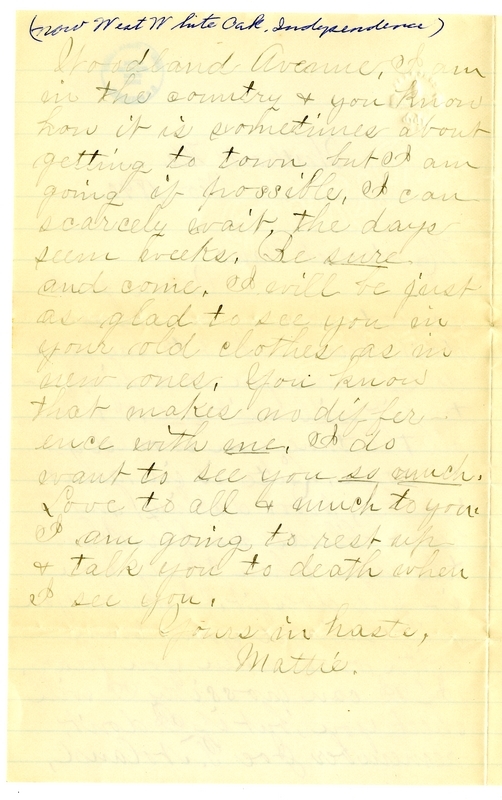 (now West White Oak, Independence)
Wood and Avenue, I am
in the country & you know
how it is sometimes about
getting to town but I am
going if possible. I can
scarcely wait, the days
seem weeks. Be sure
and come. I will be just
as glad to see you in
your old clothes as in
new ones. You know
that makes no differ
ence with me. I do
want to see you so much.
Love to all & much to you.
I am going to rest up
& talk you to death when
I see you.
Yours in haste,
Mattie.